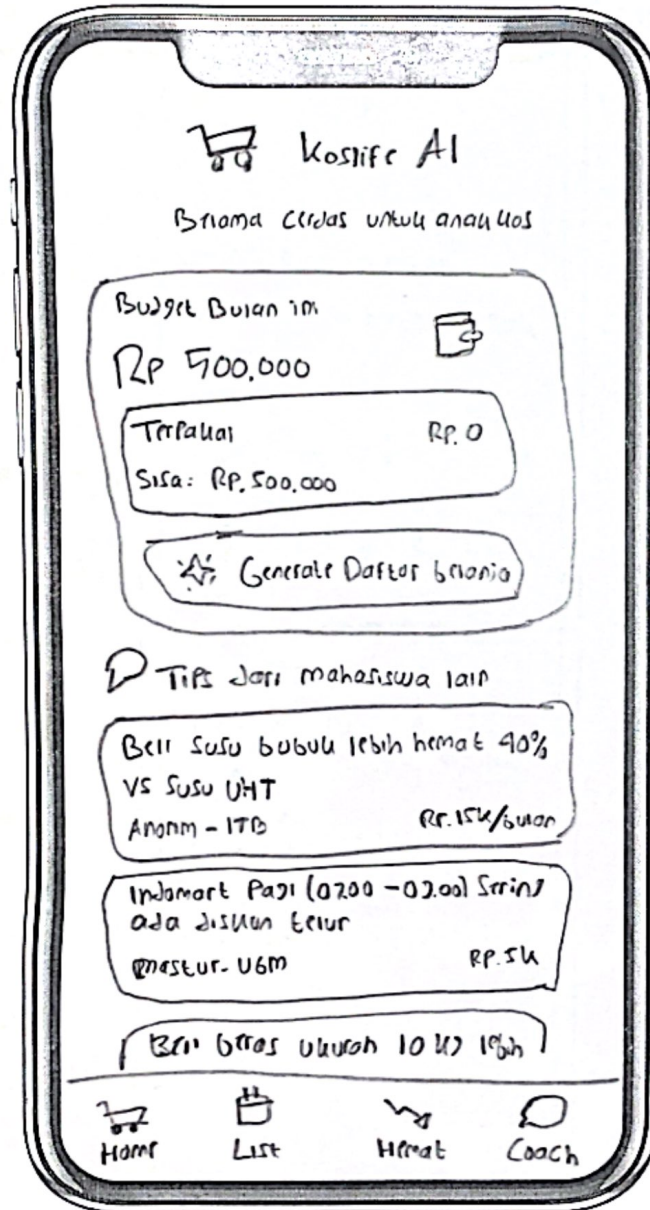 Koslife AI
Belanja cerdas untuk anak kos
Budget Bulan ini
Rp 500.000
Terpakai Rp. 0
Sisa: Rp. 500.000
Generate Daftar belanja
Tips dari mahasiswa lain
Beli susu bubuk lebih hemat 40%
VS Susu UHT
Anonim - ITB Rp. 15k/bulan
Indomart Pagi (07.00 - 09.00) Sering
ada diskon telur
- UGM Rp. 5k
Beli beras ukuran 10 kg lebih
Home List Hemat Coach